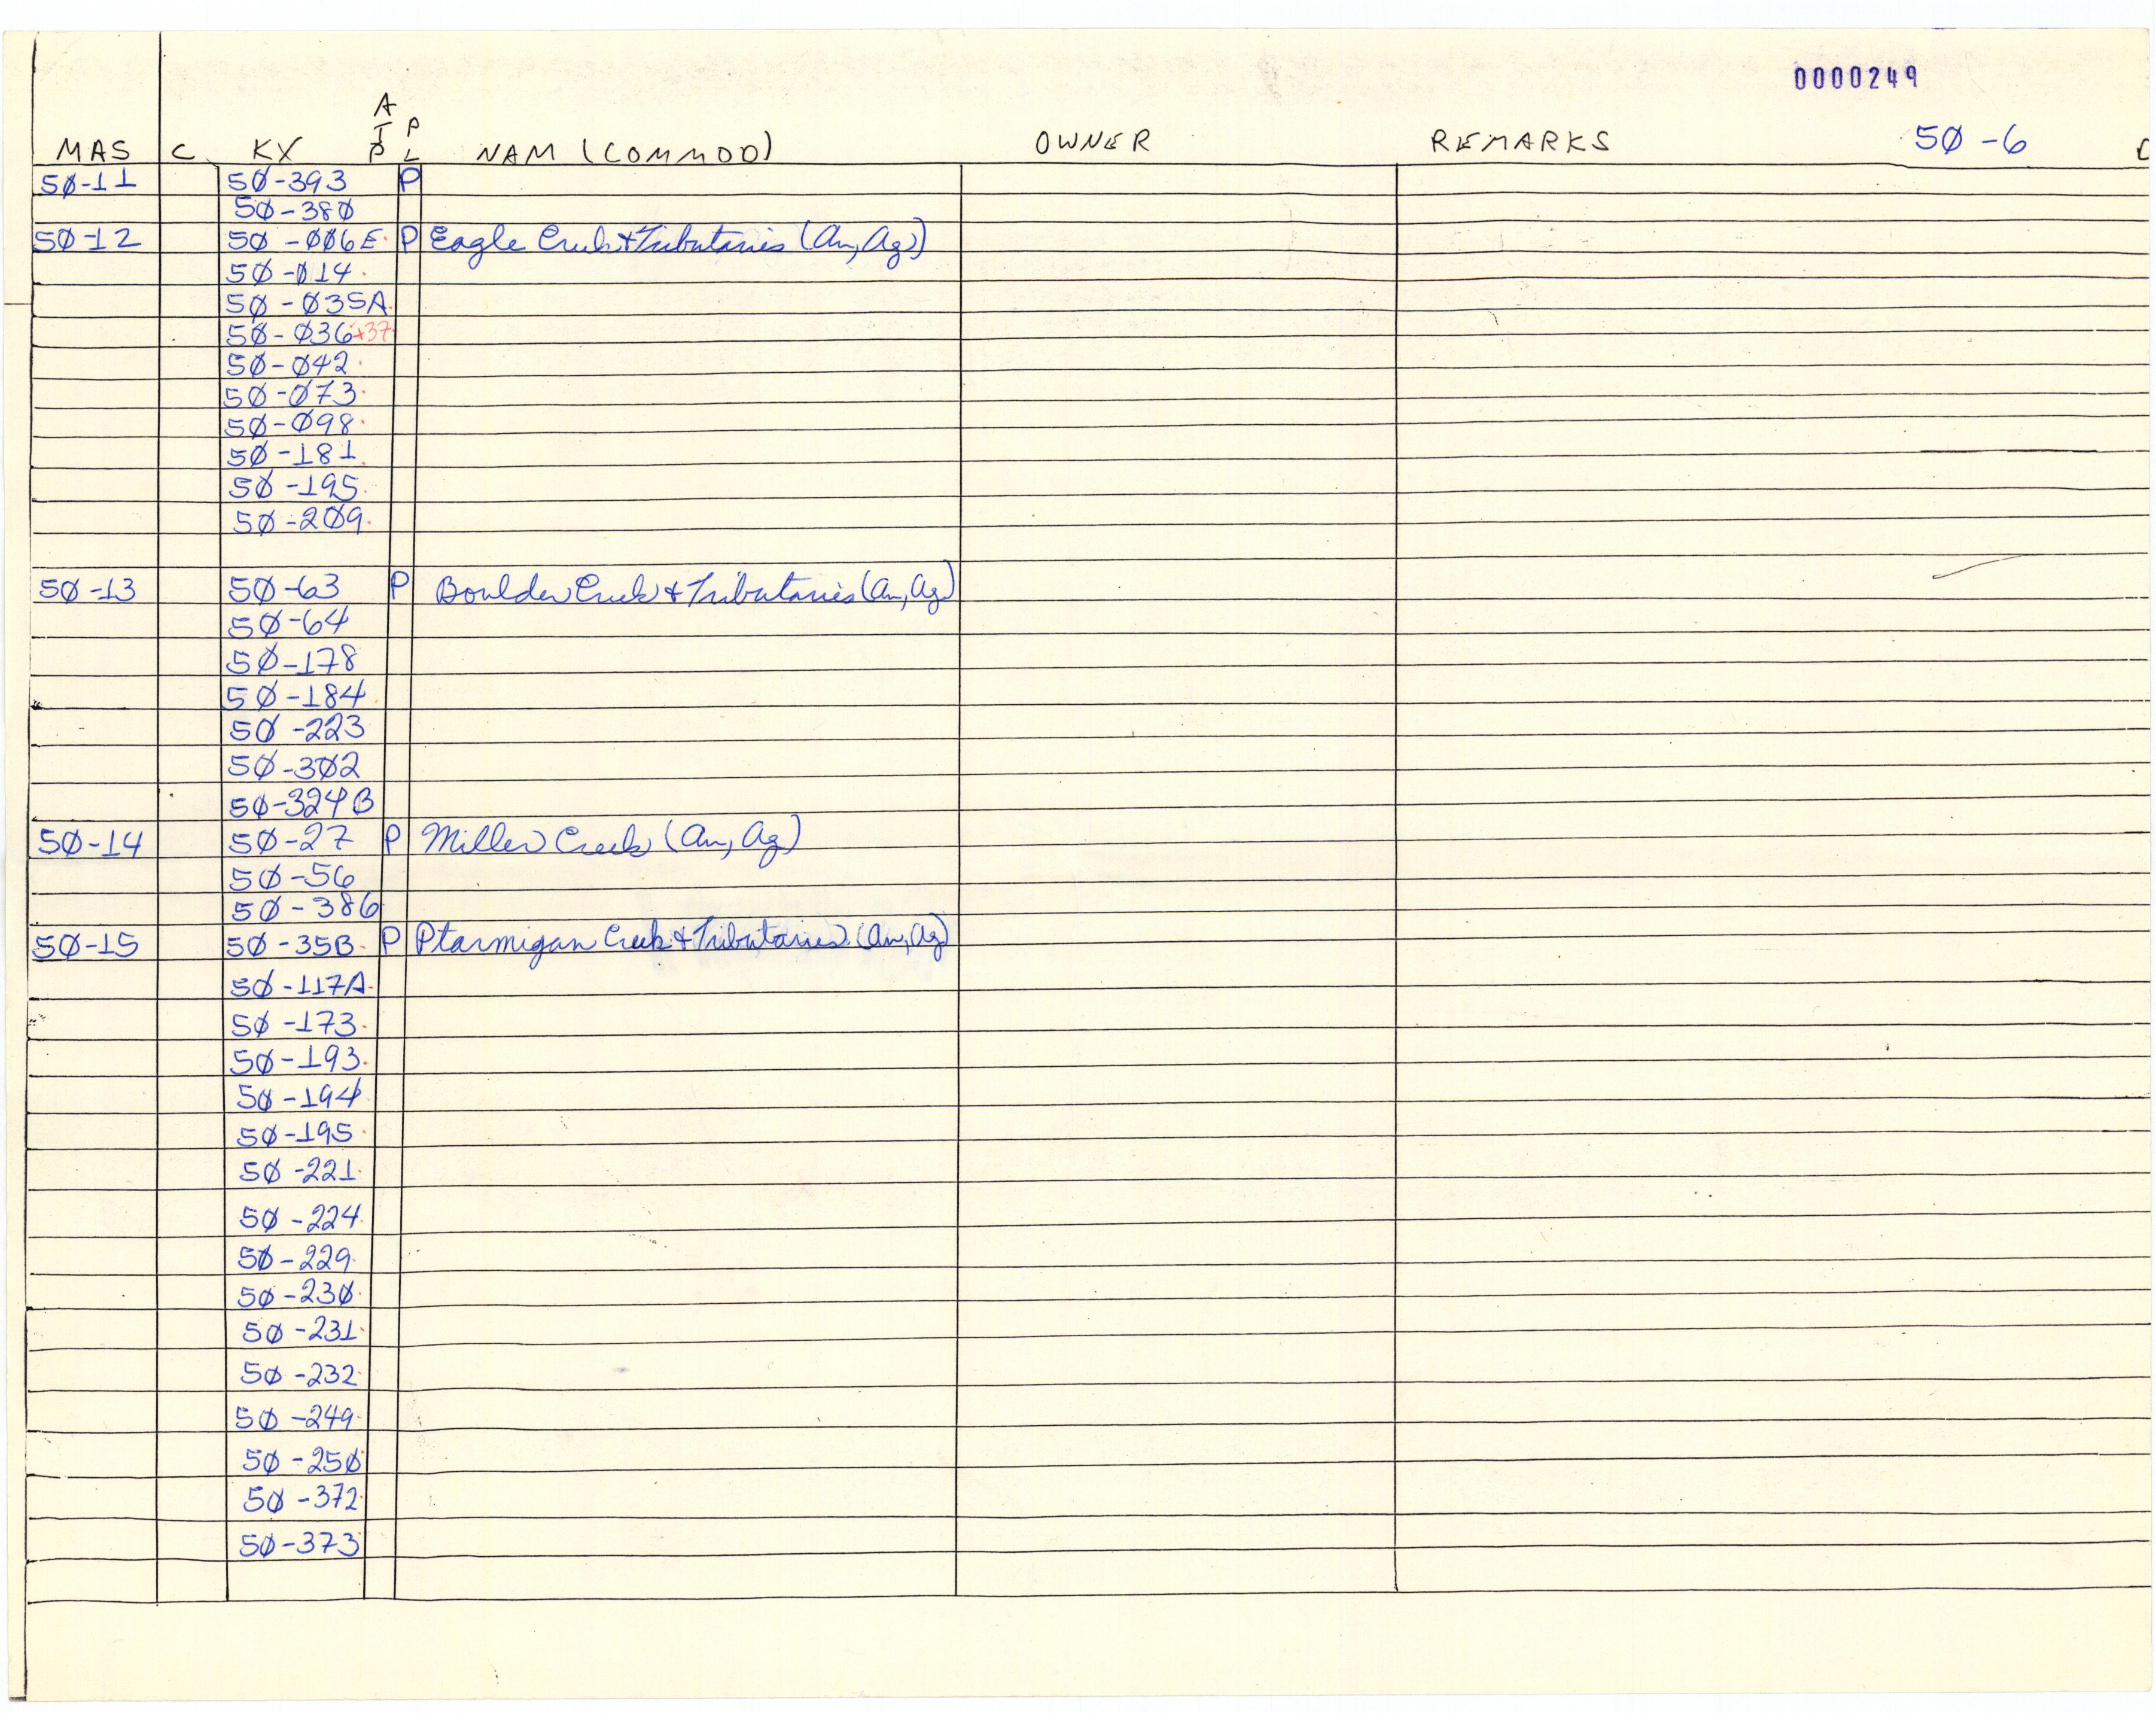 0000249
MAS C KX ATP PL NAM (COMMOD) OWNER REMARKS 5Ø-6
5Ø-11 5Ø-393 P
5Ø-38Ø
5Ø-12 5Ø-ØØ6E P Eagle Creek & Tributaries (Au, Ag)
5Ø-Ø14
5Ø-Ø35A
5Ø-Ø36+37
5Ø-Ø42
5Ø-Ø73
5Ø-Ø98
5Ø-181
5Ø-195
5Ø-2Ø9
5Ø-13 5Ø-63 P Boulder Creek & Tributaries (Au, Ag)
5Ø-64
5Ø-178
5Ø-184
5Ø-223
5Ø-3Ø2
5Ø-324B
5Ø-14 5Ø-27 P Miller Creek (Au, Ag)
5Ø-56
5Ø-386
5Ø-15 5Ø-35B P Ptarmigan Creek & Tributaries (Au, Ag)
5Ø-117A
5Ø-173
5Ø-193
5Ø-194
5Ø-195
5Ø-221
5Ø-224
5Ø-229
5Ø-23Ø
5Ø-231
5Ø-232
5Ø-249
5Ø-25Ø
5Ø-372
5Ø-373